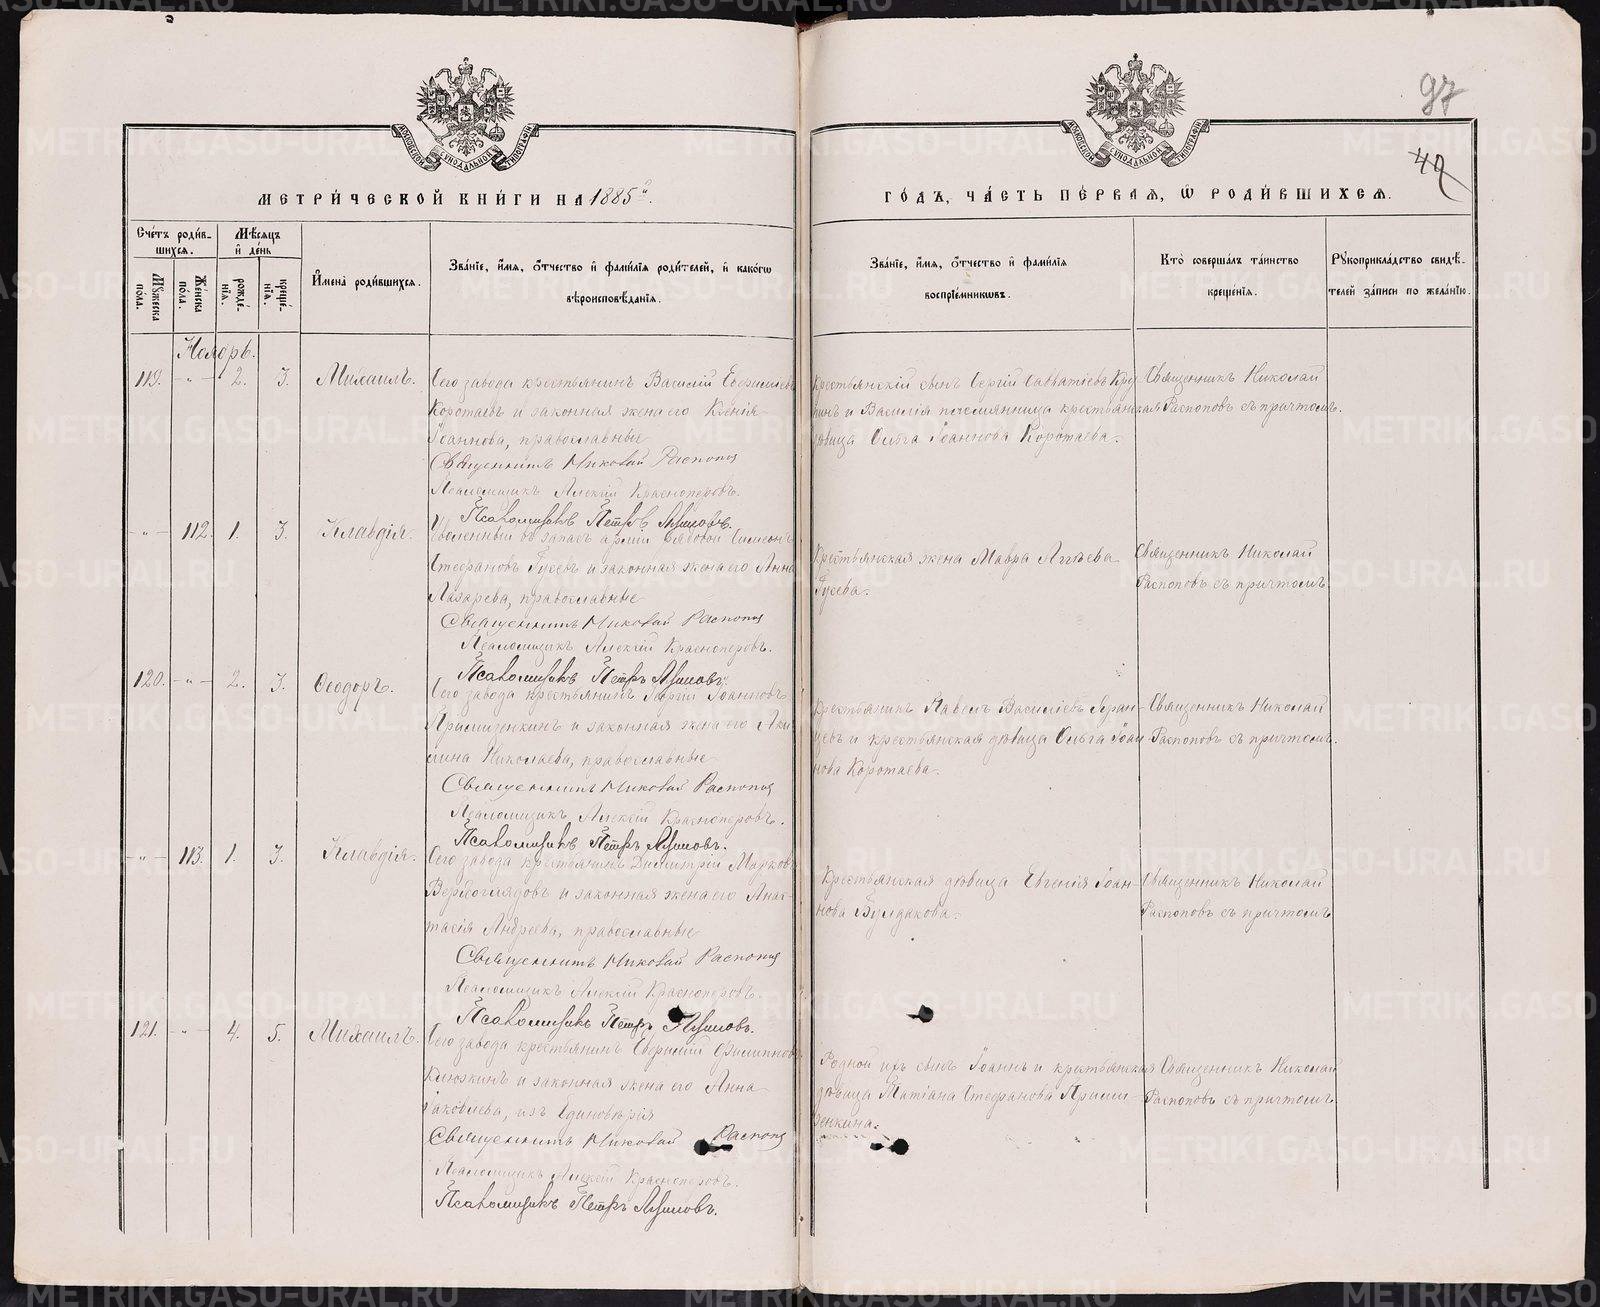 97
42
МОСКОВСКОЙ СУНОДАЛЬНОЙ ТИПОГРАФІИ
МОСКОВСКОЙ СУНОДАЛЬНОЙ ТИПОГРАФІИ
МЕТРИ́ЧЕСКОЙ КНИ́ГИ НА 1885й.
ГО́ДЪ, ЧА́СТЬ ПЕ́РВАЯ, Ѡ РОДИ́ВШИХСЯ.
Сче́тъ роди́вшихся.
Му́жеска по́ла.
Же́нска по́ла.
Мѣ́сяцъ и҆ де́нь
рожде́нїя.
креще́нїя.
И҆мена̀ роди́вшихся.
Зва́нїе, и҆́мя, ѻ҆́тчество и҆ фами́лїя роди́телей, и҆ како́гѡ вѣроисповѣ́данїя.
Зва́нїе, и҆́мя, ѻ҆́тчество и҆ фами́лїя воспрїе́мникѡвъ.
Кто̀ соверша́лъ та́инство креще́нїя.
Рꙋкоприкла́дство свидѣ́телей за́писи по жела́нїю.
Ноябрь.
119. - " - 2. 3. Михаилъ.
Сего завода крестьянинъ Василій Евфиміевъ
Коротаевъ и законная жена его Ксенія
Іоаннова, православные
Священникъ Николай Распопов
Псаломщикъ Алексій Красноперовъ.
Псаломщикъ Петръ
Крестьянскій сынъ Сергій Савватіевъ Кру
пинъ и Василія племянница крестьянская
дѣвица Ольга Іоаннова Коротаева.
Священникъ Николай
Распоповъ съ причтомъ.
- " - 112. 1. 3. Клавдія.
Уволенный въ запасъ арміи рядовой Симеонъ
Стефановъ Гусевъ и законная жена его Анна
Лазарева, православные
Священникъ Николай Распопов
Псаломщикъ Алексій Красноперовъ.
Псаломщикъ Петръ
Крестьянская жена Мавра
Гусева.
Священникъ Николай
Распоповъ съ причтомъ.
120. - " - 2. 3. Ѳеодоръ.
Сего завода крестьянинъ Сергій Іоанновъ
и законная жена его Аки
лина Николаева, православные
Священникъ Николай Распопов
Псаломщикъ Алексій Красноперовъ.
Псаломщикъ Петръ
Крестьянинъ Павелъ Василіевъ
и крестьянская дѣвица Ольга Іоан
нова Коротаева.
Священникъ Николай
Распоповъ съ причтомъ.
- " - 113. 1. 3. Клавдія.
Сего завода крестьянинъ Димитрій Марковъ
Верхоглядовъ и законная жена его Анас-
тасія Андреева, православные
Священникъ Николай Распопов
Псаломщикъ Алексій Красноперовъ.
Псаломщикъ Петръ
Крестьянская дѣвица Евгенія Іоан-
нова Булдакова.
Священникъ Николай
Распоповъ съ причтомъ
121. - " - 4. 5. Михаилъ.
Сего завода крестьянинъ Евфимій Филипповъ
Клюкинъ и законная жена его Анна
Іаковлева, изъ Единовѣрія
Священникъ Николай Распопов
Псаломщикъ Алексій Красноперовъ.
Псаломщикъ Петръ
Родной ихъ сынъ Іоаннъ и крестьянская
дѣвица Татіана Стефанова
Священникъ Николай
Распоповъ съ причтомъ
METRIKI.GASO-URAL.RU